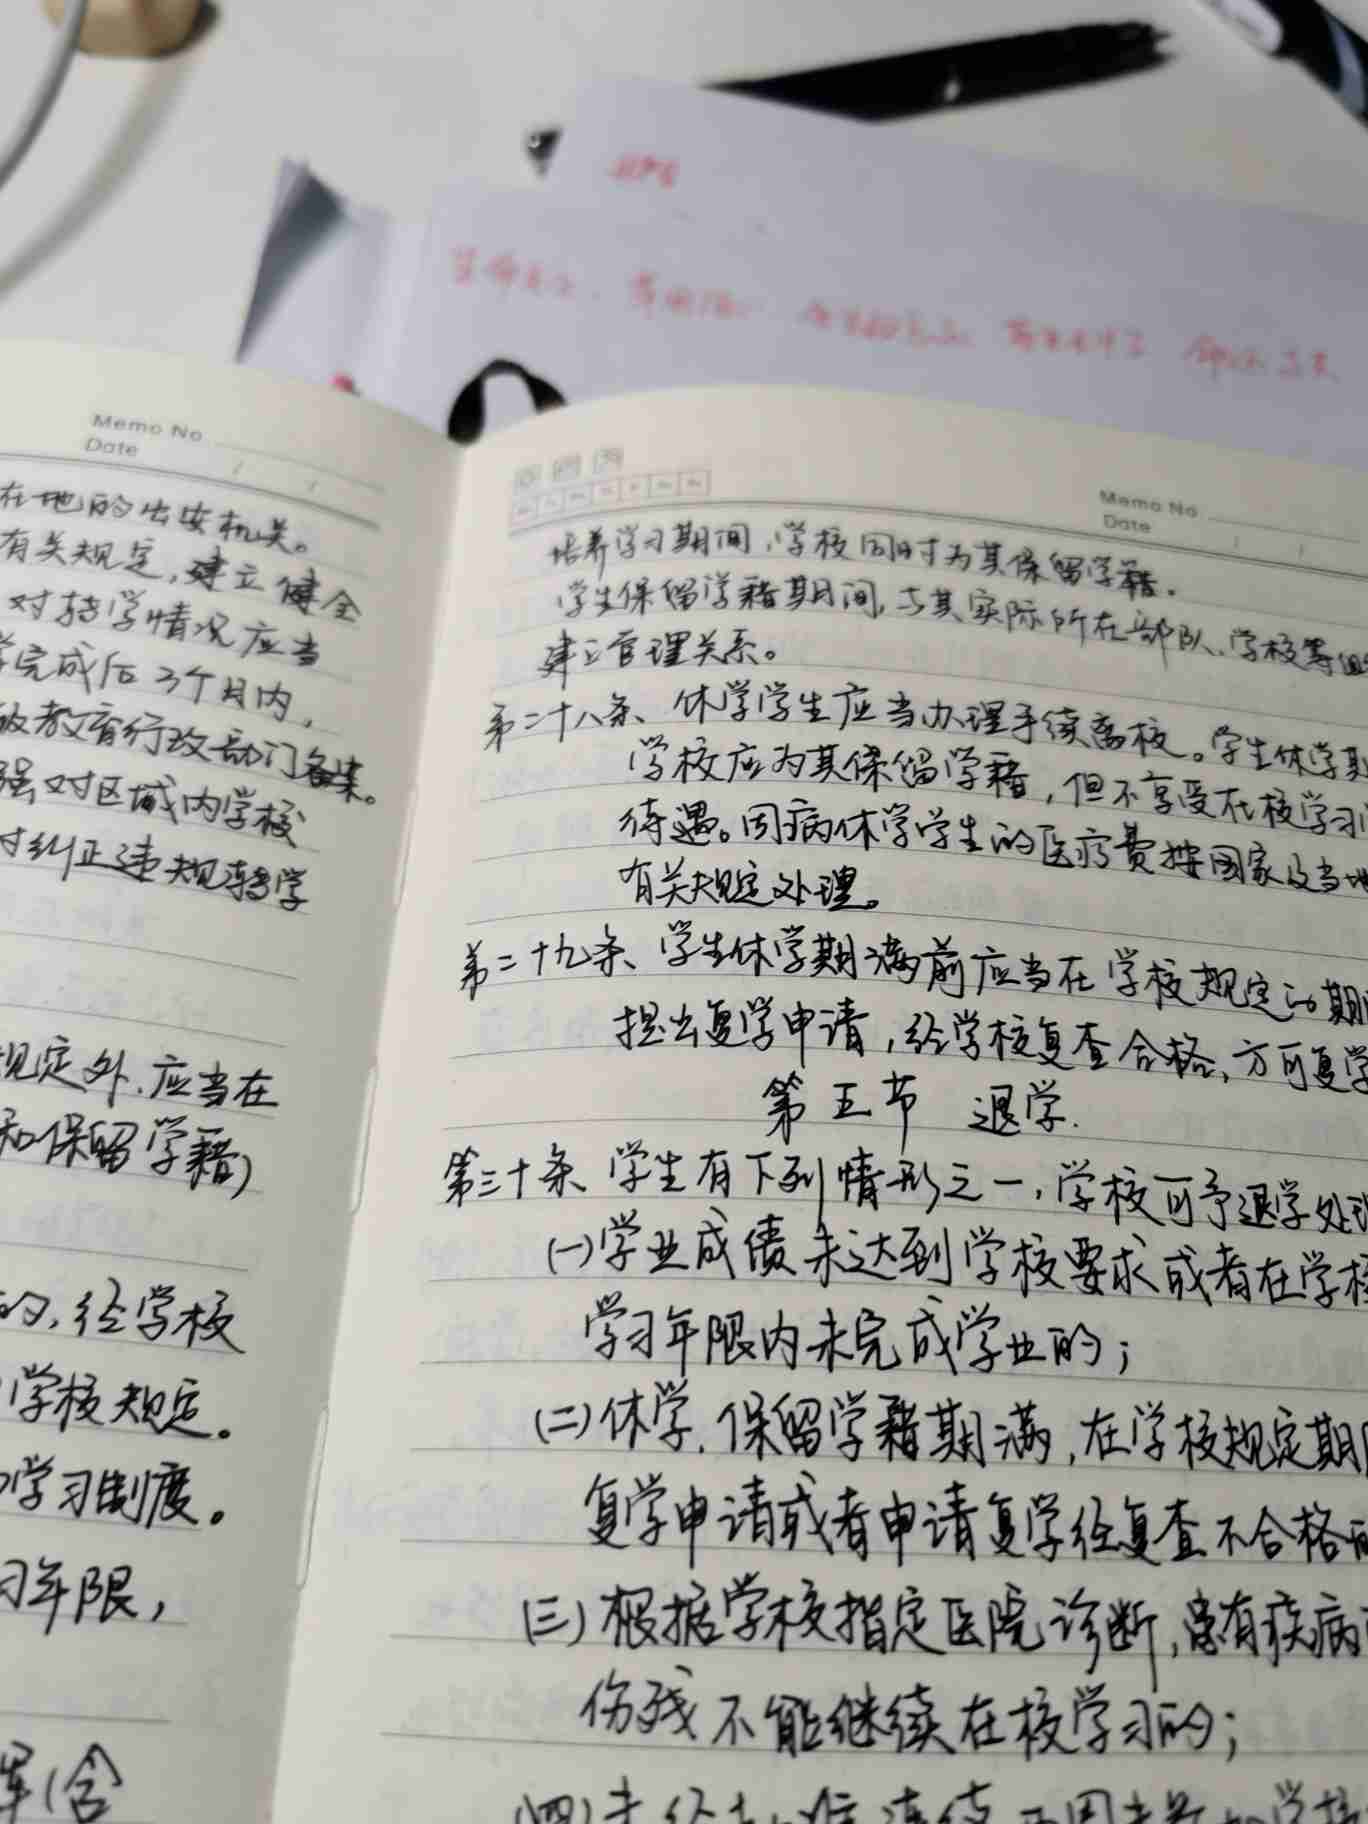 Memo No
Date
在地的公安机关。
有关规定,建立健全
对转学情况应当
完成后3个月内,
教育行政部门备案。
强对区域内学校
纠正违规转学
规定外,应当在
和保留学籍)
的,经学校
学校规定。
学习制度。
年限,
(含
Memo No
Date
培养学习期间,学校同时为其保留学籍。
学生保留学籍期间,与其实际所在部队、学校等组
建立管理关系。
第二十八条、休学学生应当办理手续离校。学生休学期
学校应为其保留学籍,但不享受在校学习
待遇。因病休学学生的医疗费按国家及当地
有关规定处理。
第二十九条、学生休学期满前应当在学校规定的期
提出复学申请,经学校复查合格,方可复学
第五节 退学.
第三十条、学生有下列情形之一,学校可予退学处理
(一)学业成绩未达到学校要求或者在学校
学习年限内未完成学业的;
(二)休学、保留学籍期满,在学校规定期
复学申请或者申请复学经复查不合格的
(三)根据学校指定医院诊断,患有疾病
伤残不能继续在校学习的;